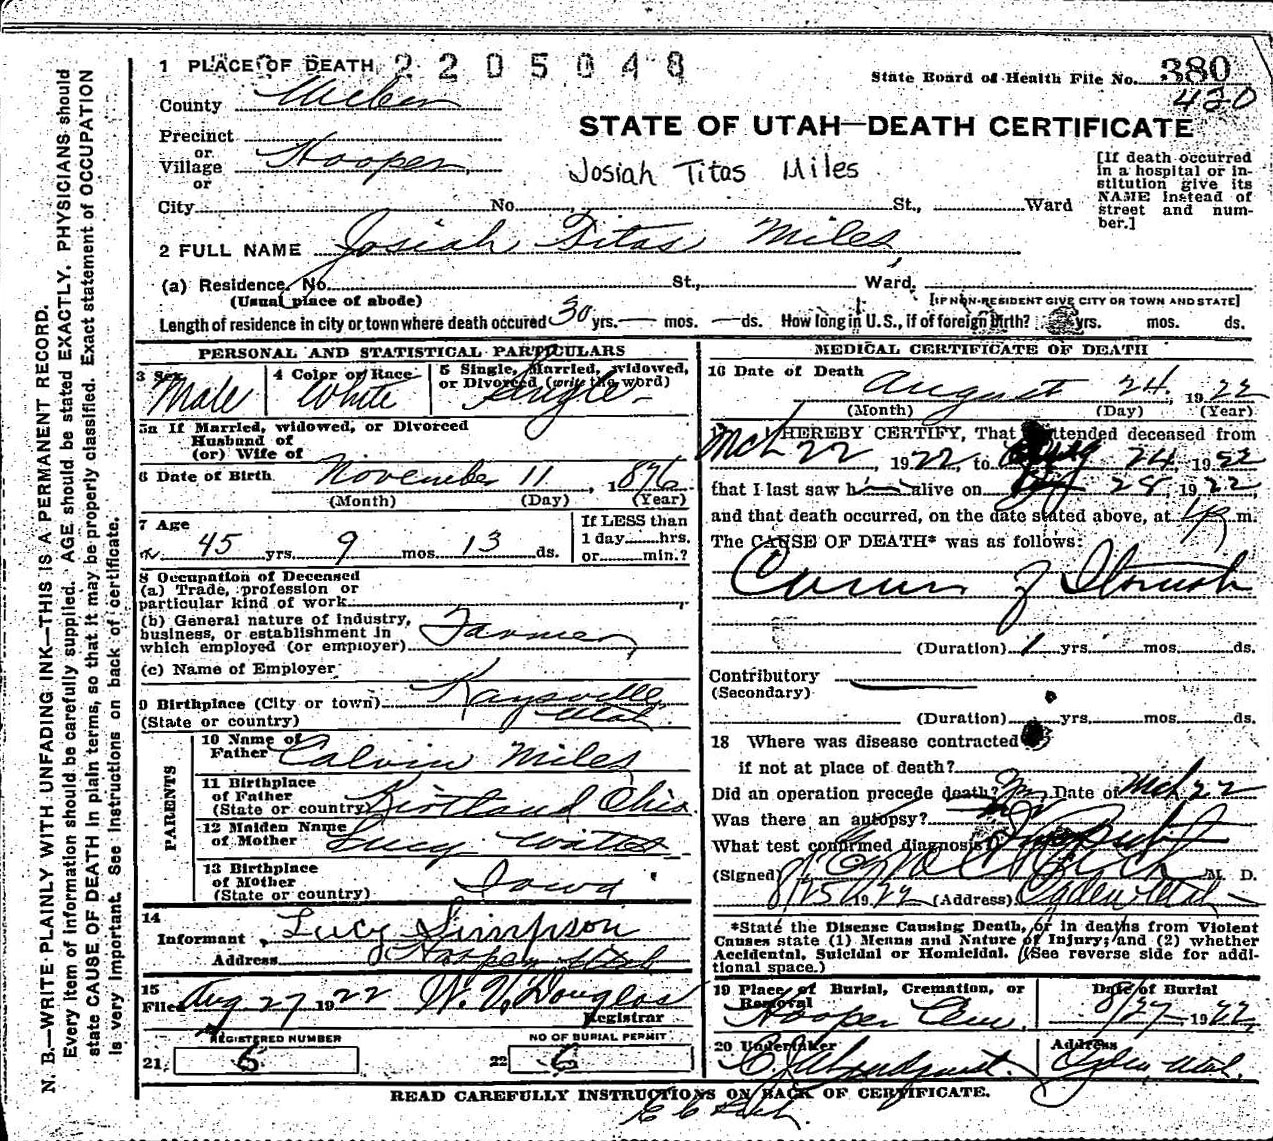 1 PLACE OF DEATH 2205048
State Board of Health File No. 380
420
County Weber
STATE OF UTAH—DEATH CERTIFICATE
Precinct
or
Village Hooper
or
Josiah Titas Miles
[If death occurred in a hospital or institution give its NAME instead of street and number.]
City No. St., Ward
2 FULL NAME Josiah Titas Miles
(a) Residence. No. St., Ward,
(Usual place of abode) [IF NON-RESIDENT GIVE CITY OR TOWN AND STATE]
Length of residence in city or town where death occured 30 yrs. — mos. — ds. How long in U.S., if of foreign birth? yrs. mos. ds.
PERSONAL AND STATISTICAL PARTICULARS
3 Sex Male
4 Color or Race White
5 Single, Married, widowed, or Divorced (write the word) Single
5a If Married, widowed, or Divorced
Husband of
(or) Wife of
6 Date of Birth November 11, 1876
(Month) (Day) (Year)
7 Age 45 yrs. 9 mos. 13 ds.
If LESS than
1 day hrs.
or min.?
8 Occupation of Deceased
(a) Trade, profession or
particular kind of work
(b) General nature of industry,
business, or establishment in
which employed (or employer) Farmer
(c) Name of Employer
9 Birthplace (City or town) Kaysville
(State or country) Utah
PARENTS
10 Name of Father Calvin Miles
11 Birthplace
of Father
(State or country) Kirtland Ohio
12 Maiden Name
of Mother Lucy Wattes
13 Birthplace
of Mother
(State or country) Iowa
14
Informant Lucy Simpson
Address Hooper Utah
15
Filed Aug 27 1922 W. V. Douglas
Registrar
REGISTERED NUMBER
21 6
NO OF BURIAL PERMIT
22 6
MEDICAL CERTIFICATE OF DEATH
16 Date of Death August 24, 1922
(Month) (Day) (Year)
17 I HEREBY CERTIFY, That I attended deceased from
Mch 22, 1922, to Aug 24 1922
that I last saw him alive on 1922,
and that death occurred, on the date stated above, at m.
The CAUSE OF DEATH* was as follows:
(Duration) 1 yrs. mos. ds.
Contributory
(Secondary)
(Duration) yrs. mos. ds.
18 Where was disease contracted
if not at place of death?
Did an operation precede death? Date of Mch 22
Was there an autopsy?
What test confirmed diagnosis?
(Signed) M. D.
8/25 1922 (Address) Ogden Utah
*State the Disease Causing Death, or in deaths from Violent
Causes state (1) Menus and Nature of Injury; and (2) whether
Accidental, Suicidal or Homicidal. (See reverse side for addi-
tional space.)
19 Place of Burial, Cremation, or Removal Hooper Cem.
Date of Burial 8/27 1922
20 Undertaker
Address Ogden Utah.
READ CAREFULLY INSTRUCTIONS ON BACK OF CERTIFICATE.
N. B.—WRITE PLAINLY WITH UNFADING INK—THIS IS A PERMANENT RECORD.
Every item of information should be carefully supplied. AGE should be stated EXACTLY. PHYSICIANS should
state CAUSE OF DEATH in plain terms, so that it may be properly classified. Exact statement of OCCUPATION
is very important. See instructions on back of certificate.